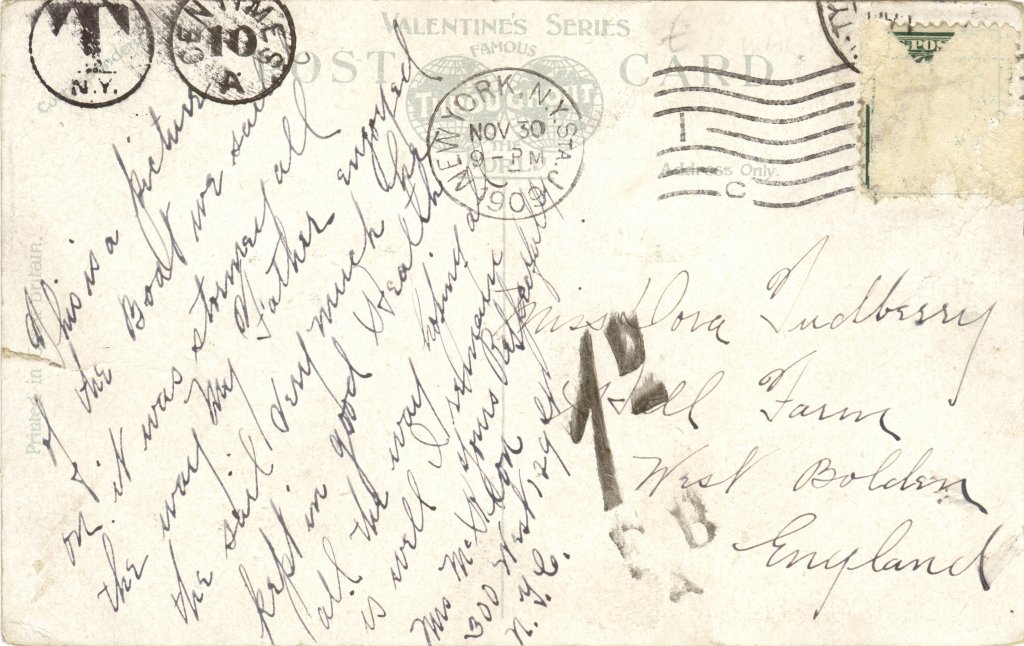 T
N.Y.
CENTIMES
10
A
VALENTINE'S SERIES
FAMOUS
THROUGHOUT
THE
WORLD
POST CARD
NEW YORK, N.Y. STA. J
NOV 30
9-PM
190
Address Only.
C
POS
Printed in Britain.
This is a picture
of the Boat we sail
on it was stormey all
the way My Father enjoyed
the sail very much He
kept in good Health
all the way hoping a
is well I remain
yours
Mrs
300 West 129 St
N.Y.C.
Miss Dora Tudberry
Hall Farm
West Bolden
England
1D.
F B
A